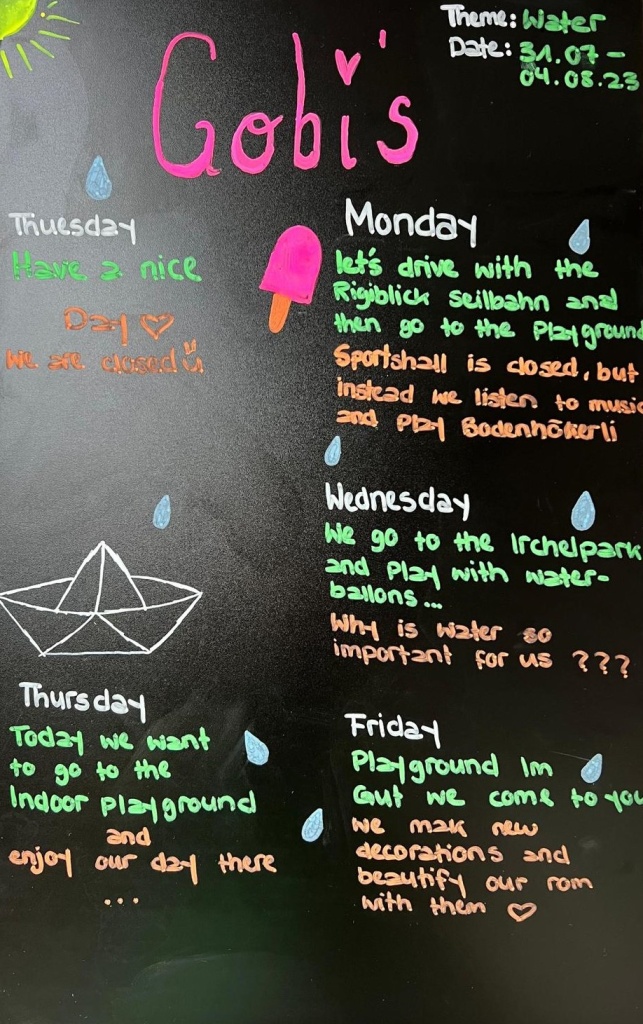 Theme: Water
Date: 31.07 -
04.08.23
Gobi's
Monday
let's drive with the
Rigiblick Seilbahn and
then go to the Playground
Sportshall is closed, but
instead we listen to music
and Play Bodenhökerli
Thuesday
Have a nice
Day
we are closed
Wednesday
We go to the Irchelpark
and Play with water-
ballons...
Why is water so
important for us ???
Thursday
Today we want
to go to the
Indoor playground
and
enjoy our day there
...
Friday
Playground Im
Gut we come to you
we mak new
decorations and
beautify our rom
with them